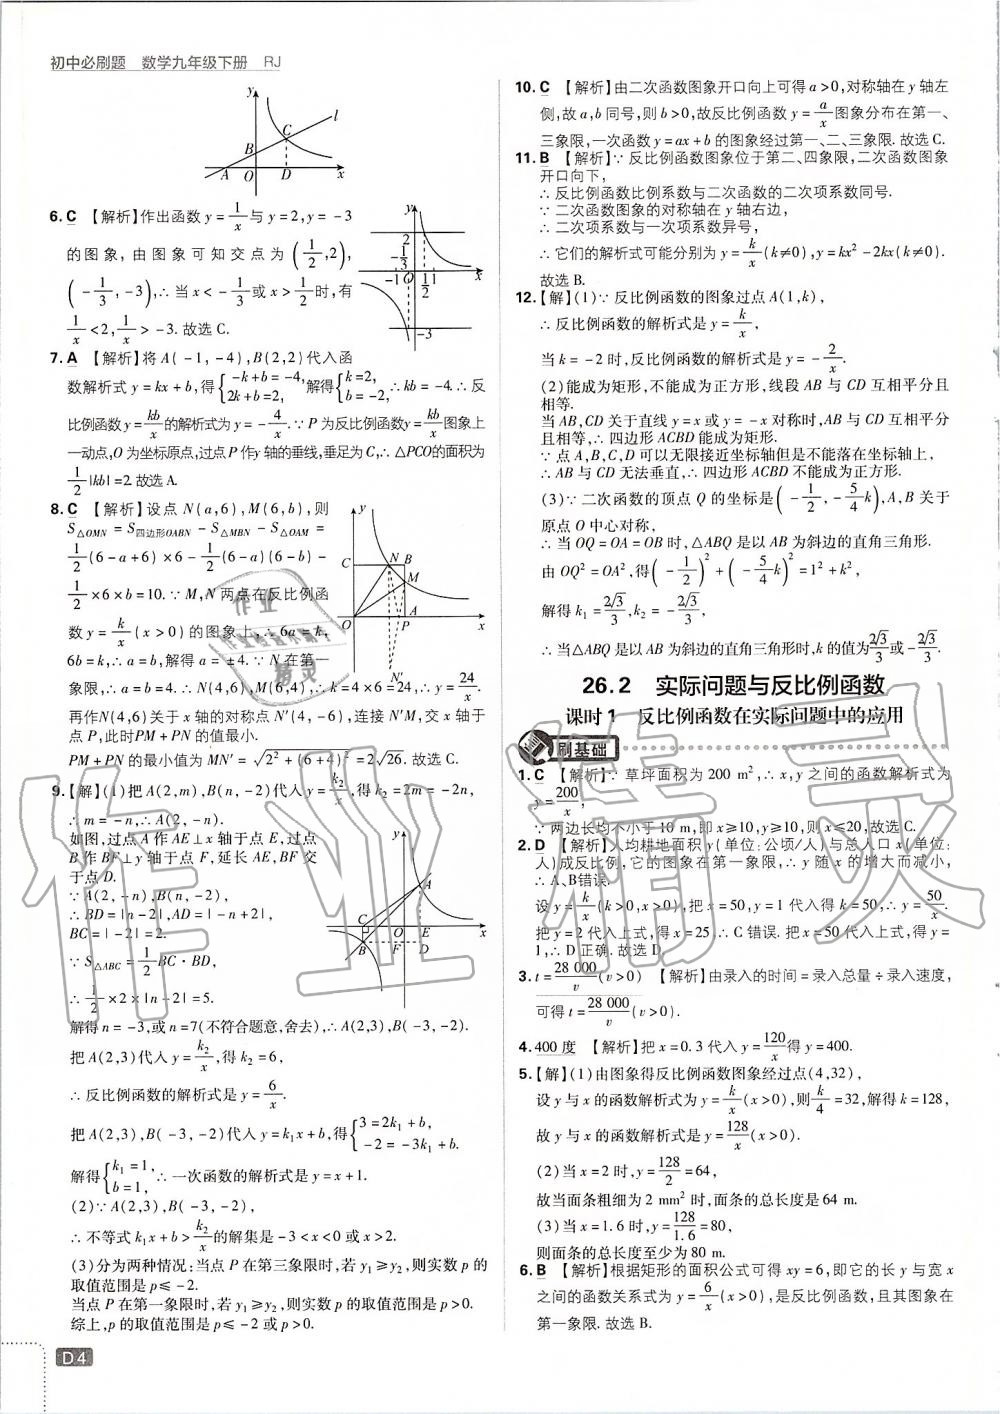 初中必刷题 数学九年级下册 RJ
y
l
C
B
A
O
D
x
6.C 【解析】作出函数y=1/x与y=2,y=-3
的图象,由图象可知交点为(1/2,2),
(-1/3,-3),∴当x<-1/3或x>1/2时,有
1/x<2,1/x>-3.故选C.
y
2
-1/3
-1
O
1/2
1
x
-3
7.A 【解析】将A(-1,-4),B(2,2)代入函
数解析式y=kx+b,得{-k+b=-4, 2k+b=2,解得{k=2, b=-2,∴kb=-4.∴反
比例函数y=kb/x的解析式为y=-4/x.∵P为反比例函数y=kb/x图象上
一动点,O为坐标原点,过点P作y轴的垂线,垂足为C,∴△PCO的面积为
1/2|kb|=2.故选A.
8.C 【解析】设点N(a,6),M(6,b),则
S△OMN=S四边形OABN-S△MBN-S△OAM=
1/2(6-a+6)×6-1/2(6-a)(6-b)-
1/2×6×b=10.∵M,N两点在反比例函
数y=k/x(x>0)的图象上,∴6a=k,
6b=k,∴a=b,解得a=±4.∵N在第一
象限,∴a=b=4,∴N(4,6),M(6,4),∴k=4×6=24,∴y=24/x.
再作N(4,6)关于x轴的对称点N′(4,-6),连接N′M,交x轴于
点P,此时PM+PN的值最小.
PM+PN的最小值为MN′=√2²+(6+4)²=2√26.故选C.
y
C
N
B
M
O
P
A
x
N′
9.【解】(1)把A(2,m),B(n,-2)代入y=k₂/x,得k₂=2m=-2n,
∴m=-n,∴A(2,-n).
如图,过点A作AE⊥x轴于点E,过点
B作BF⊥y轴于点F,延长AE,BF交
于点D.
∵A(2,-n),B(n,-2),
∴BD=|n-2|,AD=|-n+2|,
BC=|-2|=2.
∵S△ABC=1/2BC·BD,
∴1/2×2×|n-2|=5.
y
A
C
O
E
x
B
F
D
解得n=-3,或n=7(不符合题意,舍去),∴A(2,3),B(-3,-2).
把A(2,3)代入y=k₂/x,得k₂=6,
∴反比例函数的解析式是y=6/x.
把A(2,3),B(-3,-2)代入y=k₁x+b,得{3=2k₁+b, -2=-3k₁+b.
解得{k₁=1, b=1,∴一次函数的解析式是y=x+1.
(2)∵A(2,3),B(-3,-2),
∴不等式k₁x+b>k₂/x的解集是-3<x<0或x>2.
(3)分为两种情况:当点P在第三象限时,若y₁≥y₂,则实数p的
取值范围是p≤-2.
当点P在第一象限时,若y₁≥y₂,则实数p的取值范围是p>0.
综上,p的取值范围是p≤-2或p>0.
D4
10.C 【解析】由二次函数图象开口向上可得a>0,对称轴在y轴左
侧,故a,b同号,则b>0,故反比例函数y=a/x图象分布在第一、
三象限,一次函数y=ax+b的图象经过第一、二、三象限.故选C.
11.B 【解析】∵反比例函数图象位于第二、四象限,二次函数图象
开口向下,
∴反比例函数比例系数与二次函数的二次项系数同号.
∵二次函数图象的对称轴在y轴右边,
∴二次项系数与一次项系数异号,
∴它们的解析式可能分别为y=k/x(k≠0),y=kx²-2kx(k≠0).
故选B.
12.【解】(1)∵反比例函数的图象过点A(1,k),
∴反比例函数的解析式是y=k/x,
当k=-2时,反比例函数的解析式是y=-2/x.
(2)能成为矩形,不能成为正方形,线段AB与CD互相平分且
相等.
当AB,CD关于直线y=x或y=-x对称时,AB与CD互相平分
且相等,∴四边形ACBD能成为矩形.
∵点A,B,C,D可以无限接近坐标轴但是不能落在坐标轴上,
∴AB与CD无法垂直,∴四边形ACBD不能成为正方形.
(3)∵二次函数的顶点Q的坐标是(-1/2,-5/4k),A,B关于
原点O中心对称,
∴当OQ=OA=OB时,△ABQ是以AB为斜边的直角三角形.
由OQ²=OA²,得(-1/2)²+(-5/4k)²=1²+k²,
解得k₁=2√3/3,k₂=-2√3/3,
∴当△ABQ是以AB为斜边的直角三角形时,k的值为2√3/3或-2√3/3.
26.2 实际问题与反比例函数
课时1 反比例函数在实际问题中的应用
刷基础
1.C 【解析】∵草坪面积为200 m²,∴x,y之间的函数解析式为
y=200/x.
∵两边长均不小于10 m,即x≥10,y≥10,则x≤20,故选C.
2.D 【解析】人均耕地面积y(单位:公顷/人)与总人口x(单位:
人)成反比例,它的图象在第一象限,∴y随x的增大而减小,
∴A、B错误.
设y=k/x(k>0,x>0),把x=50,y=1代入得k=50,∴y=50/x.
把y=2代入上式,得x=25,∴C错误.把x=50代入上式,得y=
1,∴D正确.故选D.
3.t=28 000/v(v>0) 【解析】由录入的时间=录入总量÷录入速度,
可得t=28 000/v(v>0).
4.400度 【解析】把x=0.3代入y=120/x得y=400.
5.【解】(1)由图象得反比例函数图象经过点(4,32),
设y与x的函数解析式为y=k/x(x>0),则k/4=32,解得k=128,
故y与x的函数解析式为y=128/x(x>0).
(2)当x=2时,y=128/2=64,
故当面条粗细为2 mm²时,面条的总长度是64 m.
(3)当x=1.6时,y=128/1.6=80,
则面条的总长度至少为80 m.
6.B 【解析】根据矩形的面积公式可得xy=6,即它的长y与宽x
之间的函数关系式为y=6/x(x>0),是反比例函数,且其图象在
第一象限.故选B.
作业精灵